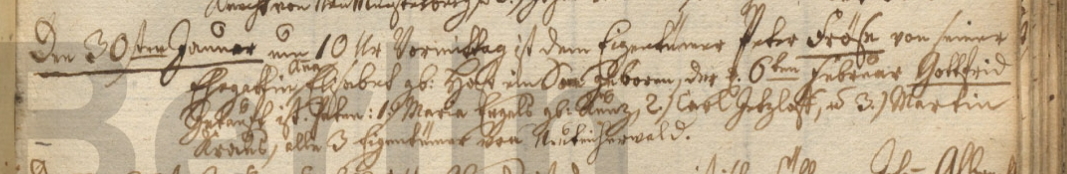 Den 30sten Januar um 10 Uhr Vormittag ist dem Eigentümer Peter Fröse von seiner
Ehegattin Ana Elisabet gb: ein Son geboren, der d. 6ten Februar Gottfrid
Getauft ist. Paten: 1.) Maria Engels gb: Kunz, 2.) Carl Jetzlaff, u 3.) Martin
Kraus, alle 3 Eigentümer von
Berlin